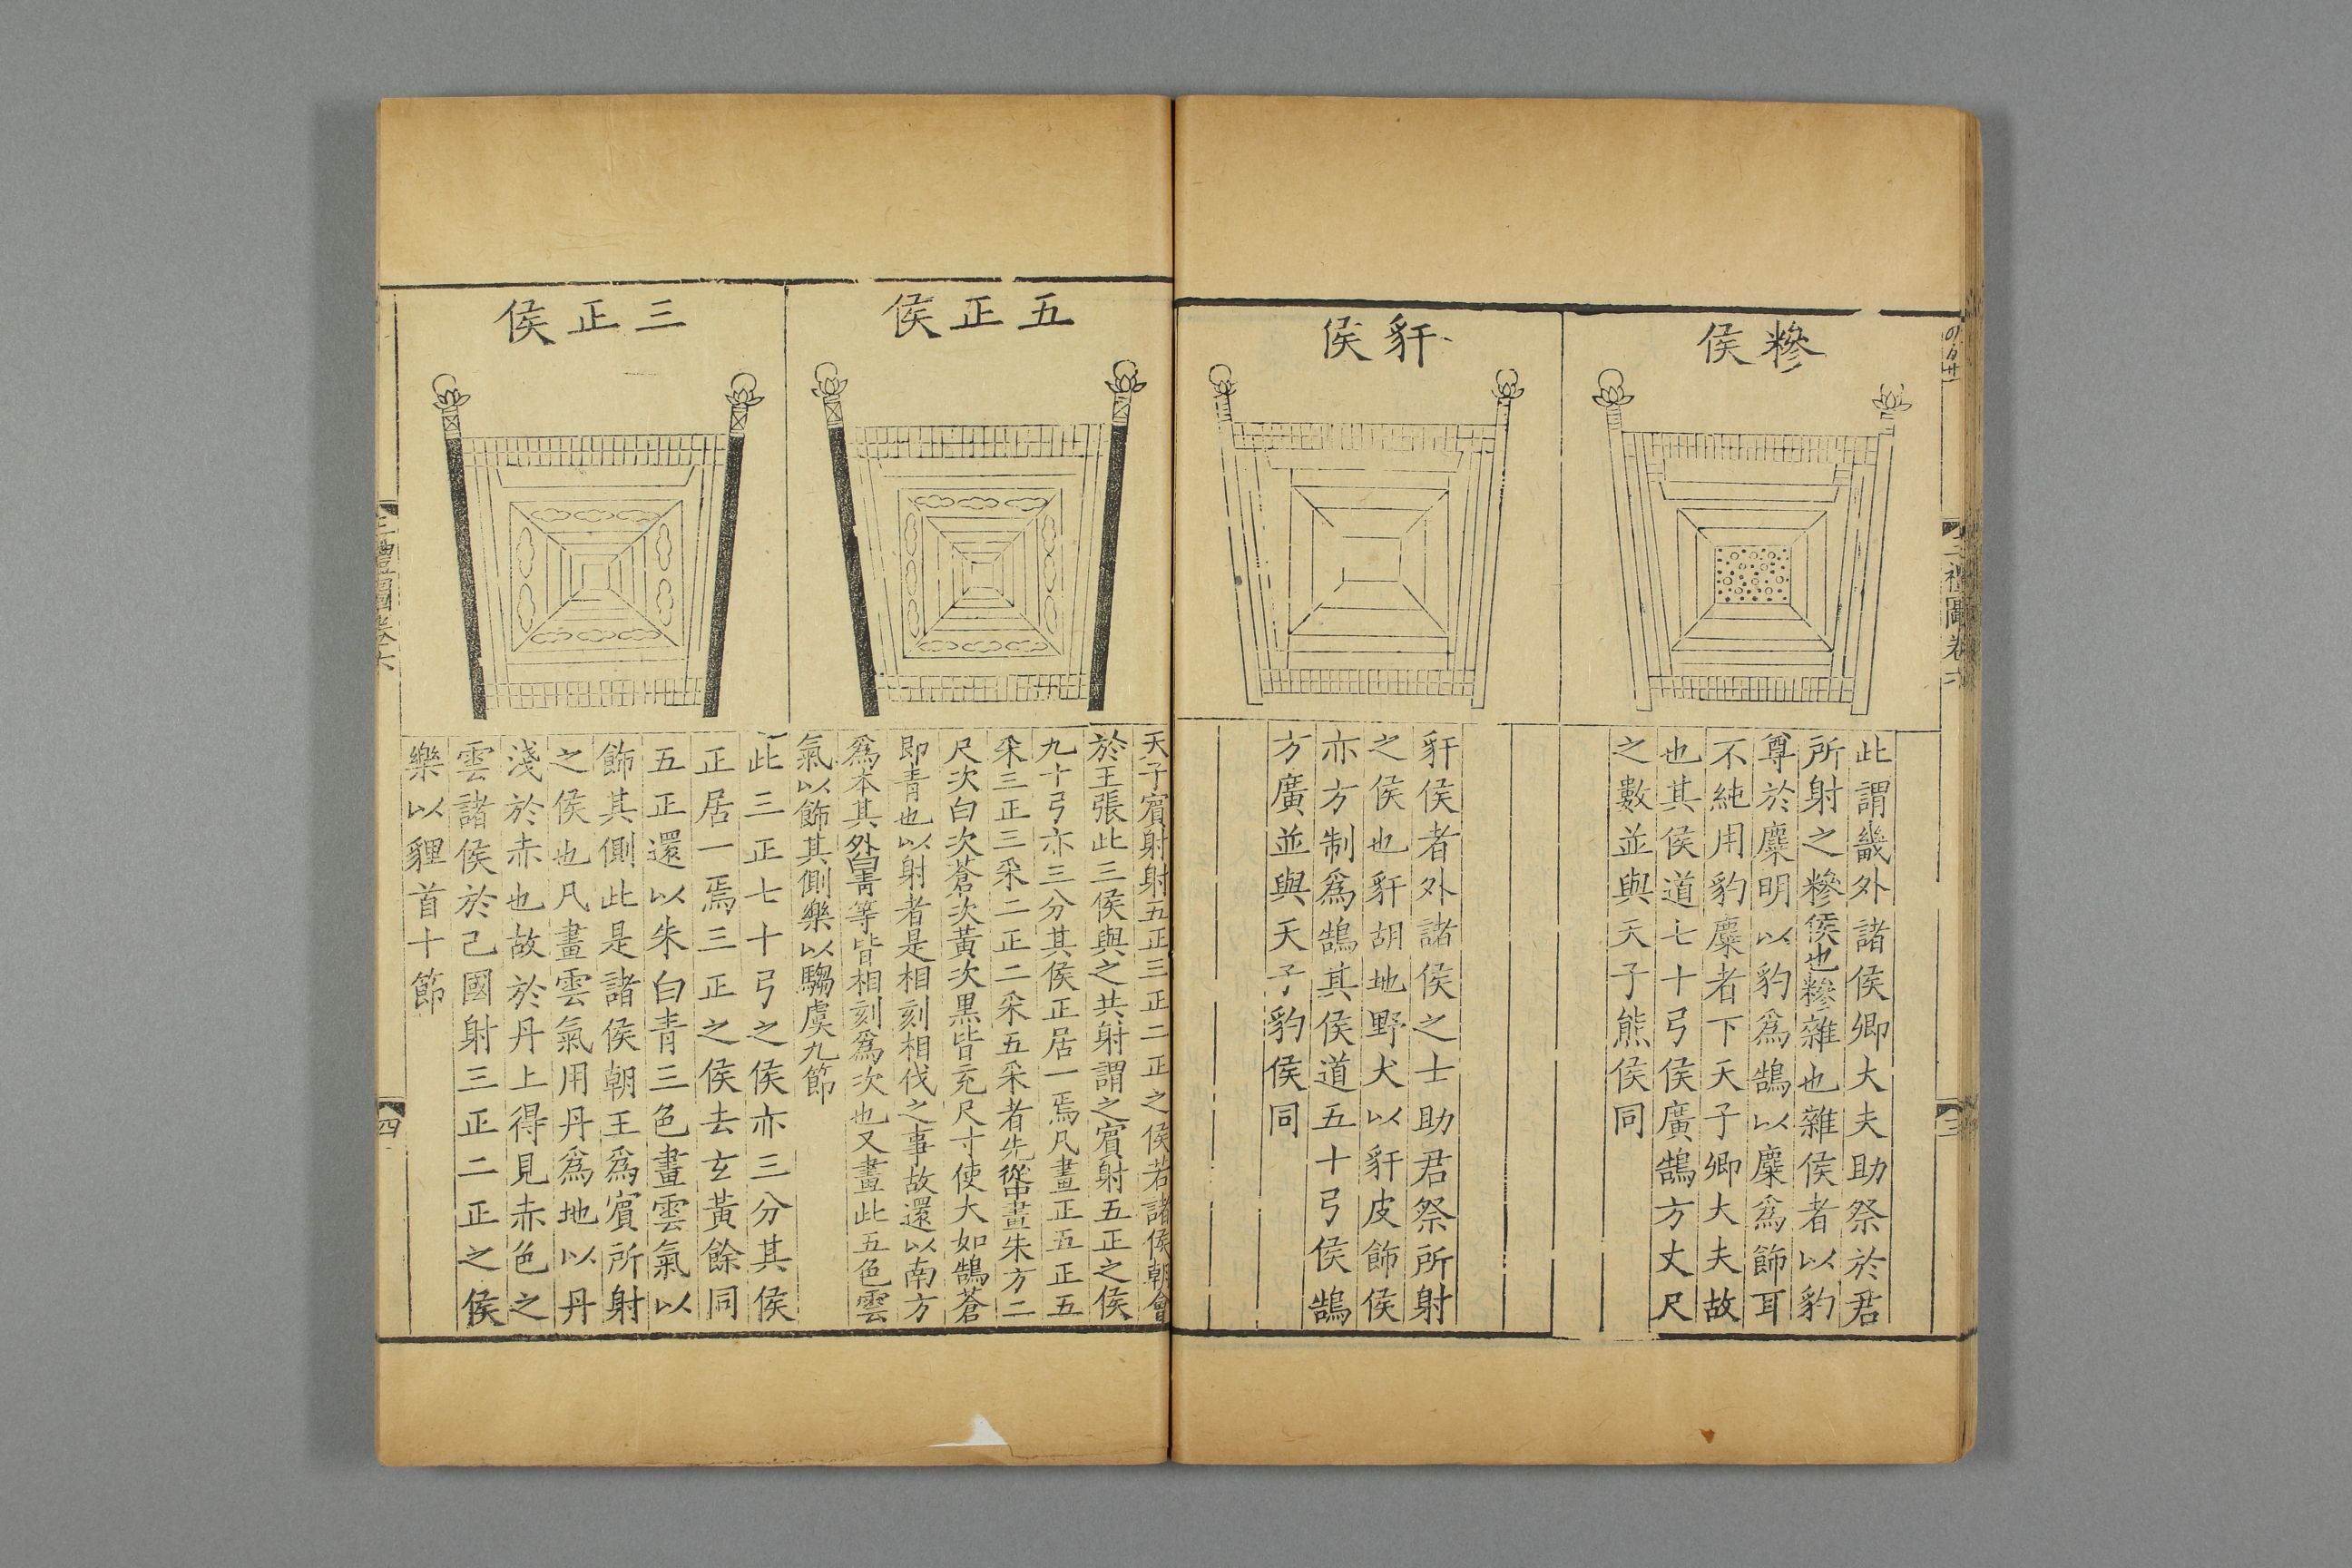 糝侯
此謂畿外諸侯卿大夫助祭於君
所射之糝侯也糝雜也雜侯者以豹
尊於麋明以豹爲鵠以麋爲飾耳
不純用豹麋者下天子卿大夫故
也其侯道七十弓侯廣鵠方丈尺
之數並與天子熊侯同
豻侯
豻侯者外諸侯之士助君祭所射
之侯也豻胡地野犬以豻皮飾侯
亦方制爲鵠其侯道五十弓侯鵠
方廣並與天子豹侯同
三禮圖卷六
三
五正侯
天子賓射射五正三正二正之侯若諸侯朝會
於王張此三侯與之共射謂之賓射五正之侯
九十弓亦三分其侯正居一焉凡畫正五正五
采三正三采二正二采五采者先從中畫朱方二
尺次白次蒼次黃次黑皆充尺寸使大如鵠蒼
即青也以射者是相刻相伐之事故還以南方
爲本其外白青等皆相刻爲次也又畫此五色雲
氣以飾其側樂以騶虞九節
三正侯
此三正七十弓之侯亦三分其侯
正居一焉三正之侯去玄黃餘同
五正還以朱白青三色畫雲氣以
飾其側此是諸侯朝王爲賓所射
之侯也凡畫雲氣用丹爲地以丹
淺於赤也故於丹上得見赤色之
雲諸侯於己國射三正二正之侯
樂以貍首十節
三禮圖卷六
四